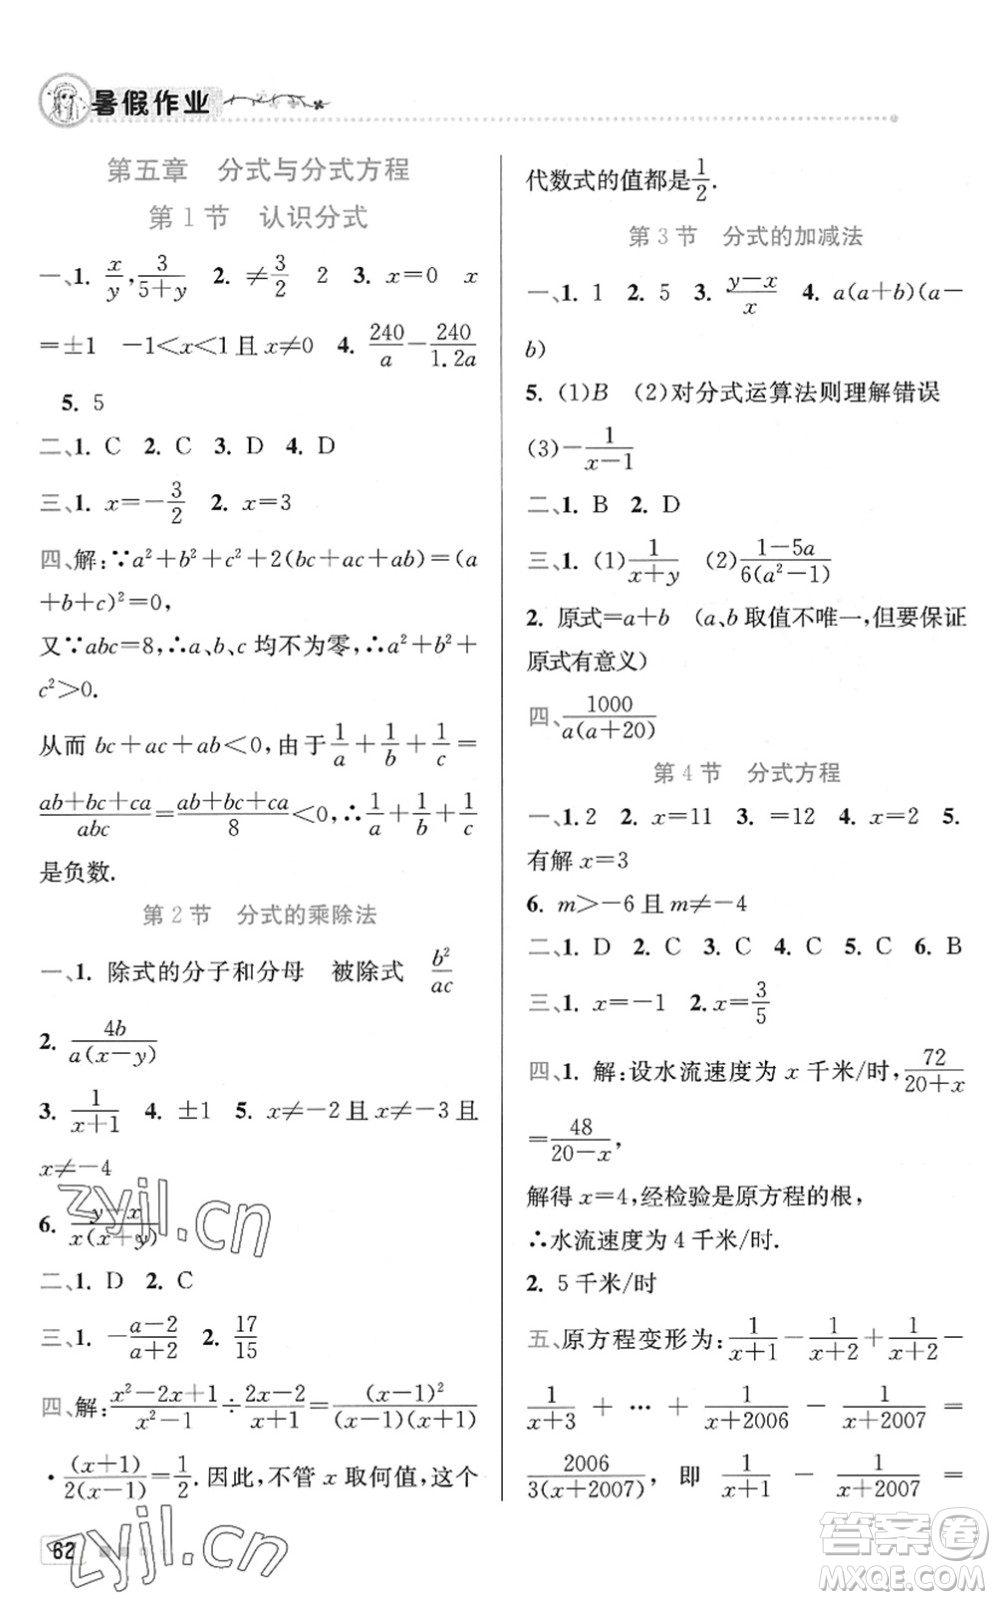 暑假作业
第五章　分式与分式方程
第1节　认识分式
一、1. x/y, 3/(5+y)　2. ≠3/2　2　3. x=0　x
=±1　-1<x<1且x≠0　4. 240/a-240/1.2a
5. 5
二、1. C　2. C　3. D　4. D
三、1. x=-3/2　2. x=3
四、解:∵a²+b²+c²+2(bc+ac+ab)=(a
+b+c)²=0,
又∵abc=8,∴a、b、c均不为零,∴a²+b²+
c²>0.
从而bc+ac+ab<0,由于1/a+1/b+1/c=
(ab+bc+ca)/abc=(ab+bc+ca)/8,∴1/a+1/b+1/c
是负数.
第2节　分式的乘除法
一、1. 除式的分子和分母　被除式　b²/ac
2. 4b/a(x-y)
3. 1/(x+1)　4. ±1　5. x≠-2且x≠-3且
x≠-4
6. (y-x)/x(x+y)
二、1. D　2. C
三、1. -(a-2)/(a+2)　2. 17/15
四、解:(x²-2x+1)/(x²-1)÷(2x-2)/(x+1)=(x-1)²/(x-1)(x+1)
·(x+1)/2(x-1)=1/2. 因此,不管x取何值,这个
62
代数式的值都是1/2.
第3节　分式的加减法
一、1. 1　2. 5　3. (y-x)/x　4. a(a+b)(a-
b)
5. (1)B　(2)对分式运算法则理解错误
(3)-1/(x-1)
二、1. B　2. D
三、1. (1)1/(x+y)　(2)(1-5a)/6(a²-1)
2. 原式=a+b　(a、b取值不唯一,但要保证
原式有意义)
四、1000/a(a+20)
第4节　分式方程
一、1. 2　2. x=11　3. =12　4. x=2　5.
有解x=3
6. m>-6且m≠-4
二、1. D　2. C　3. C　4. D　5. C　6. B
三、1. x=-1　2. x=3/5
四、1. 解:设水流速度为x千米/时,72/(20+x)
=48/(20-x),
解得x=4,经检验是原方程的根,
∴水流速度为4千米/时.
2. 5千米/时
五、原方程变形为:1/(x+1)-1/(x+2)+1/(x+2)-
1/(x+3)+…+1/(x+2006)-1/(x+2007)=
2006/3(x+2007),即1/(x+1)-1/(x+2007)=
zyjl.cn
zyjl.cn
答案圈
MXQE.COM